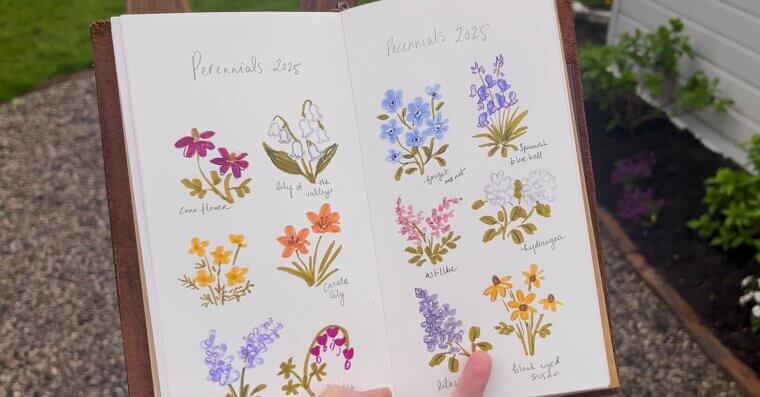 Perennials 2025
Cone flower
lily of the
valley
Canada
lily
Perennials 2025
forget
me not
Spanish
blue bell
astilbe
hydrangea
lilac
black eyed
susan